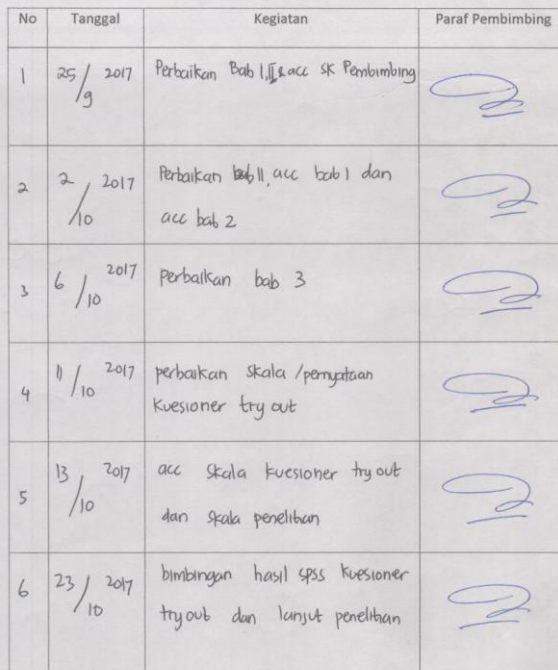 No Tanggal Kegiatan Paraf Pembimbing
1 25/9 2017 Perbaikan Bab I,II & acc SK Pembimbing
2 2/10 2017 Perbaikan bab II, acc bab 1 dan
acc bab 2
3 6/10 2017 perbaikan bab 3
4 11/10 2017 perbaikan skala /pernyataan
kuesioner try out
5 13/10 2017 acc skala kuesioner try out
dan skala penelitian
6 23/10 2017 bimbingan hasil spss kuesioner
tryout dan lanjut penelitian